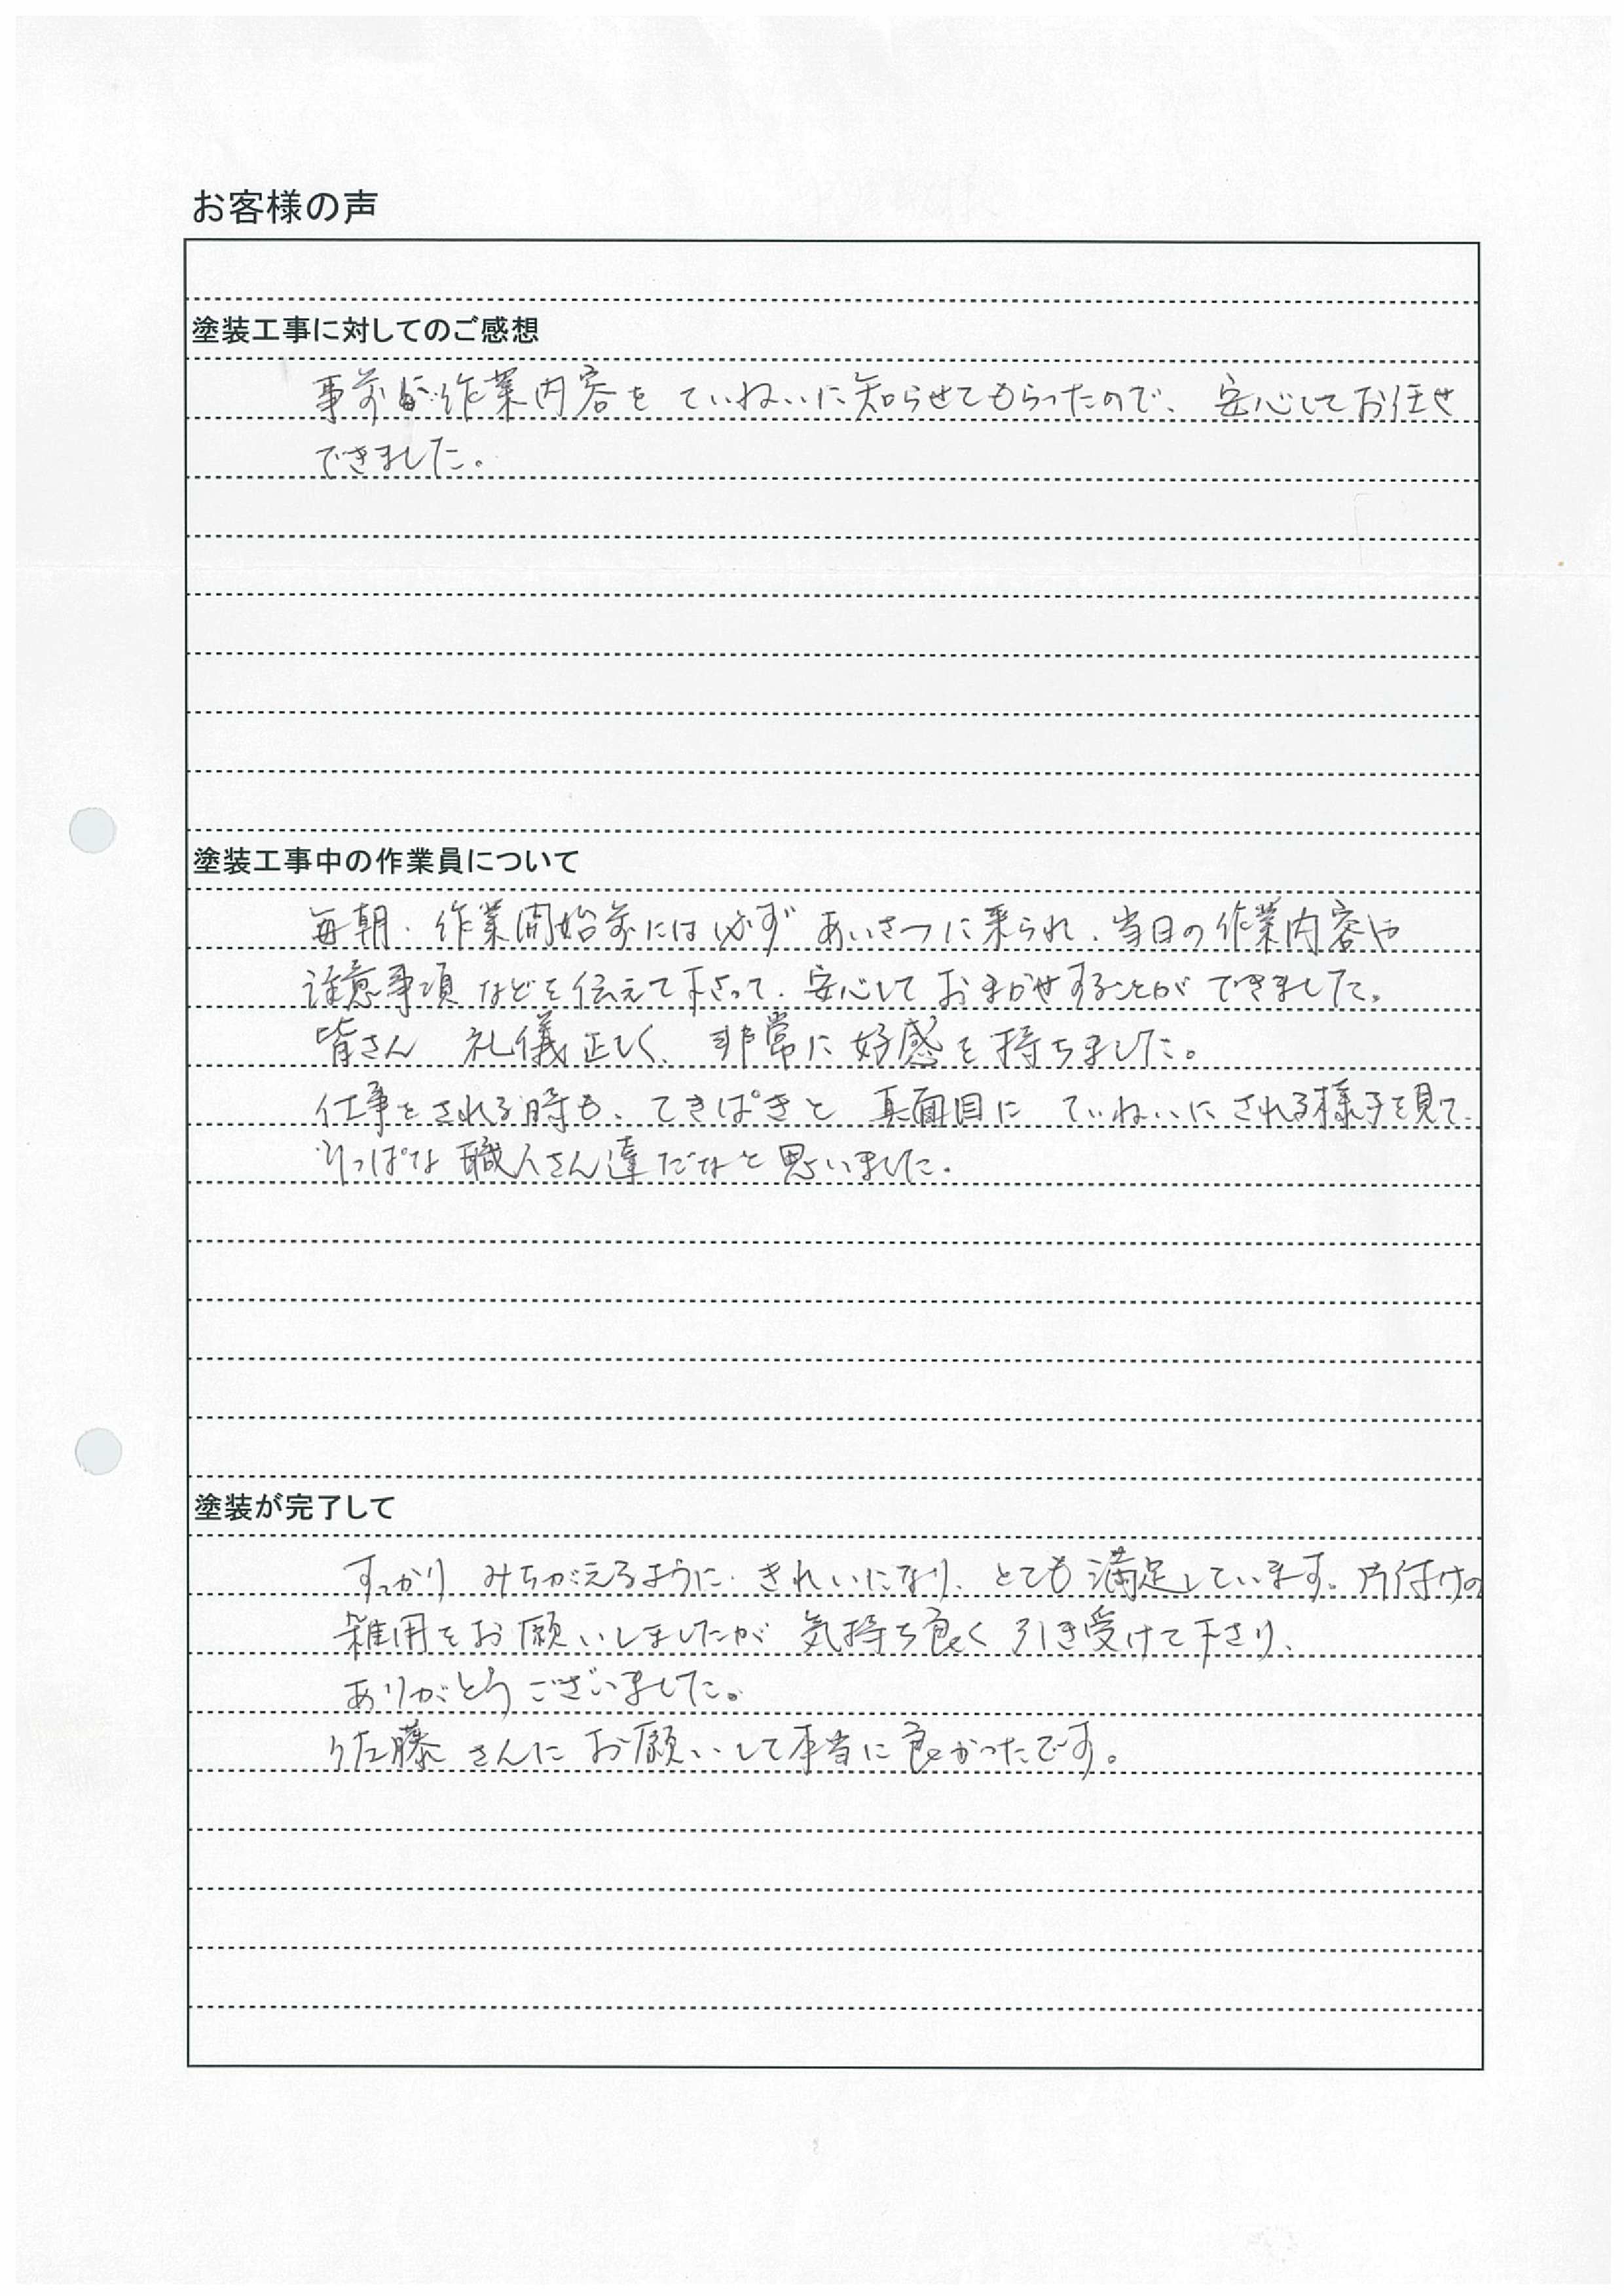 お客様の声
塗装工事に対してのご感想
事前に作業内容を ていねいに知らせてもらったので、安心してお任せ
できました。
塗装工事中の作業員について
毎朝、作業開始前には必ず あいさつに来られ、当日の作業内容や
注意事項 などを伝えて下さって、安心して おまかせすることが できました。
皆さん 礼儀正しく、非常に好感を持ちました。
仕事をされる時も、てきぱきと 真面目に ていねいにされる様子を見て、
りっぱな 職人さん達だなと思いました。
塗装が完了して
すっかり みちがえるように、きれいになり、とても満足しています。片付けの
雑用をお願いしましたが 気持ち良く引き受けて下さり、
ありがとうございました。
佐藤さんに お願いして本当に良かったです。